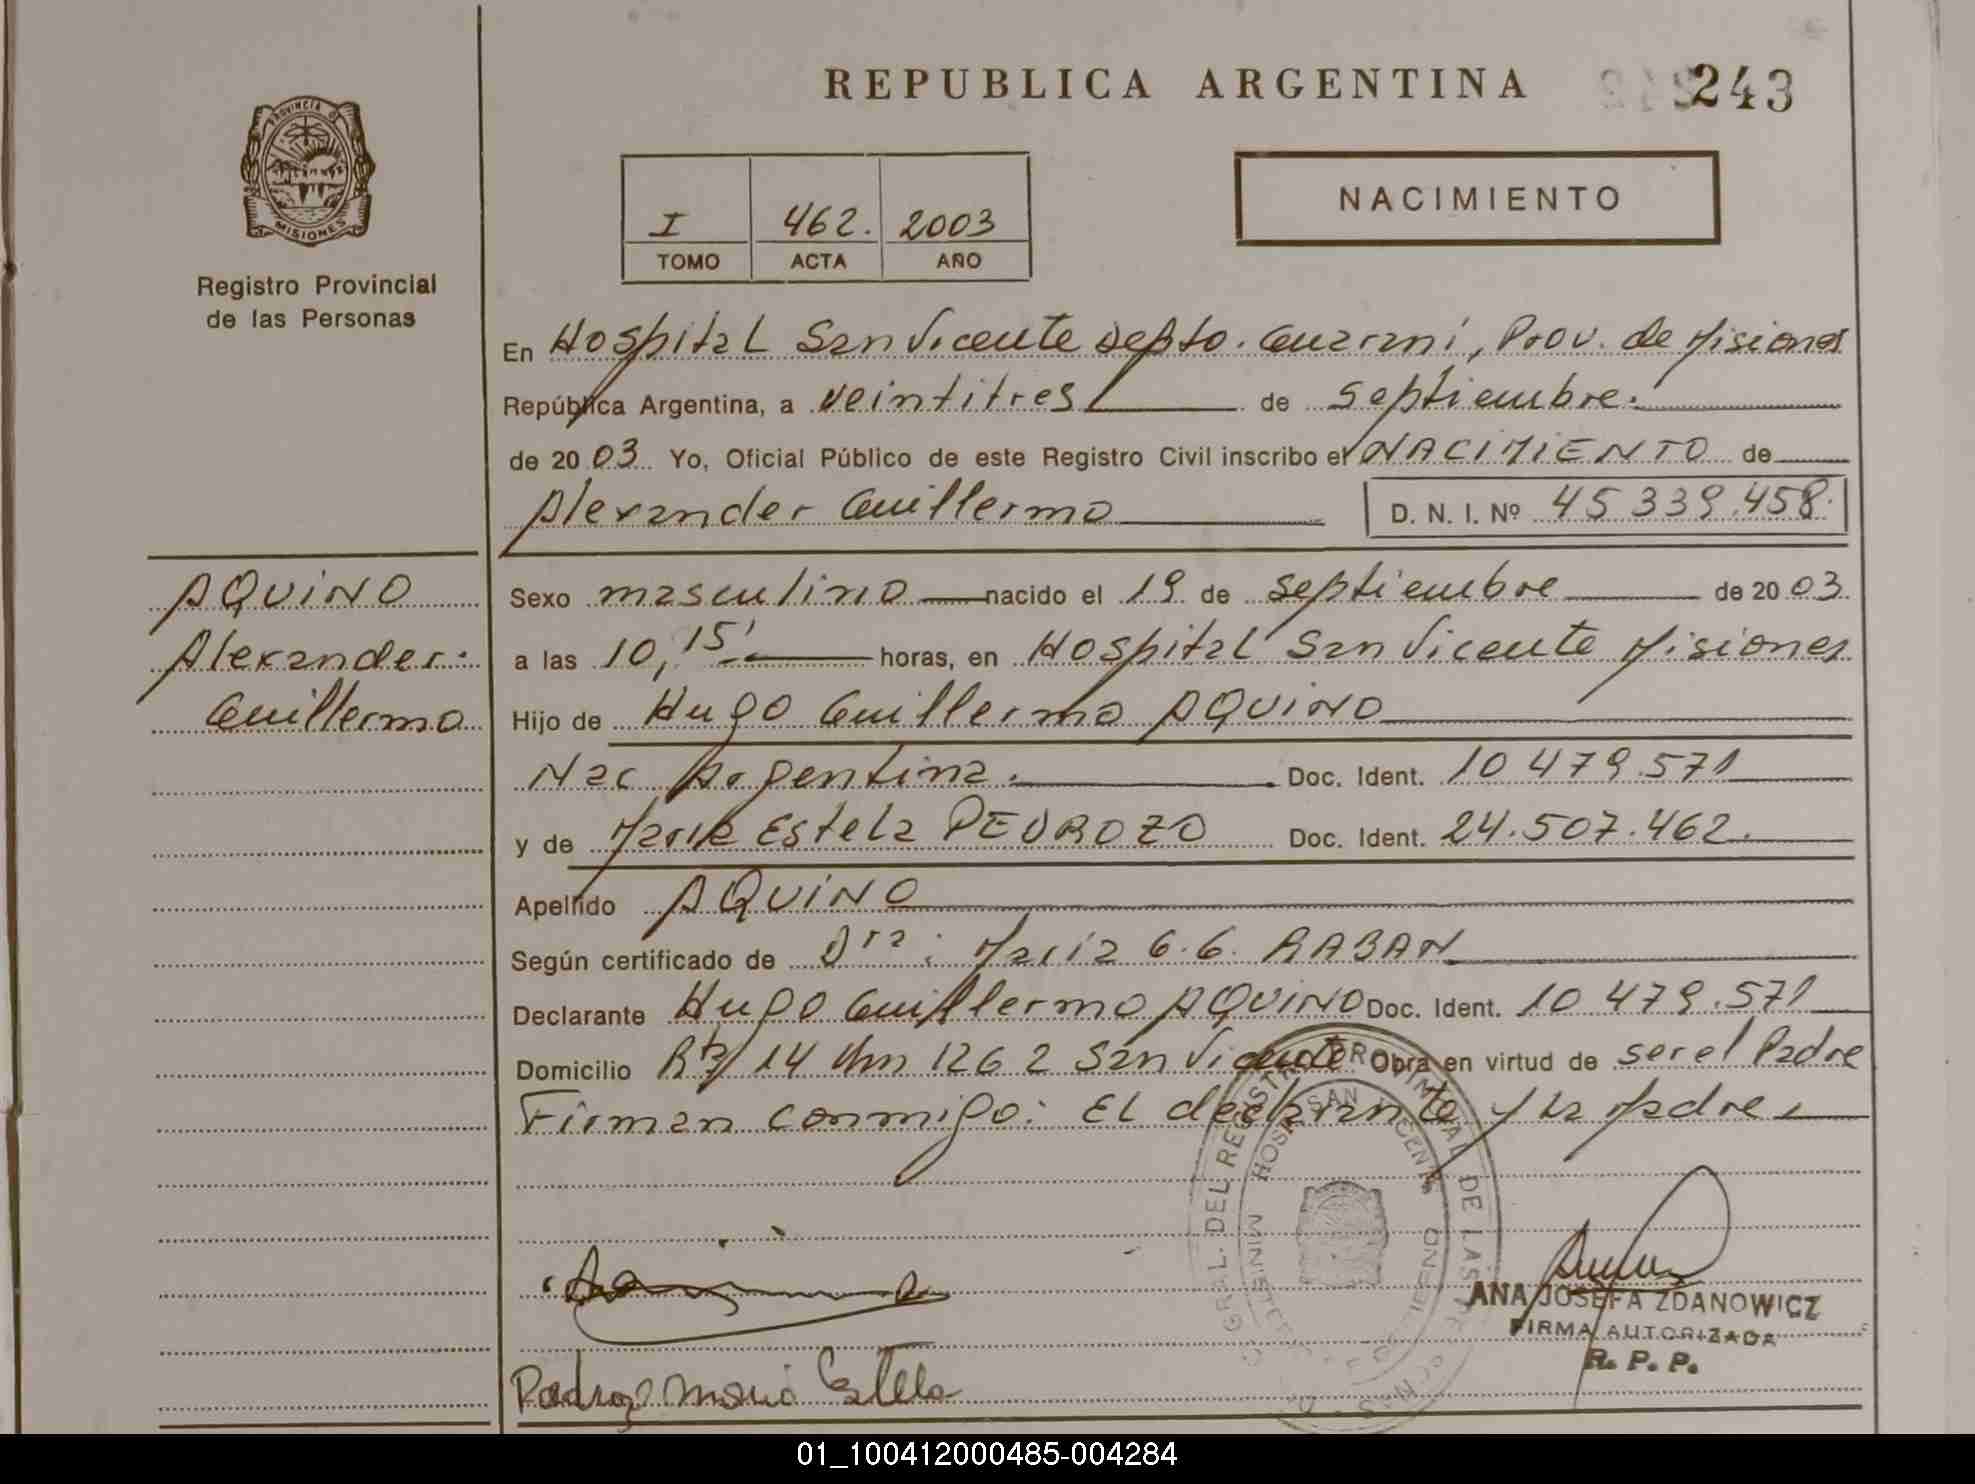 REPUBLICA ARGENTINA
243
PROVINCIA DE
MISIONES
Registro Provincial
de las Personas
I 462. 2003
TOMO ACTA AÑO
NACIMIENTO
En Hospital San Vicente Depto. Guaraní, Prov. de Misiones
República Argentina, a veintitres de septiembre.
de 2003 Yo, Oficial Público de este Registro Civil inscribo el NACIMIENTO de
Alexander Guillermo
D. N. I. Nº 45 339.458.
AQUINO
Alexander.
Guillermo
Sexo masculino nacido el 19 de septiembre de 2003.
a las 10,15' horas, en Hospital San Vicente Misiones
Hijo de Hugo Guillermo AQUINO
Nac Argentina. Doc. Ident. 10 479.571
y de María Estela PEDROZO Doc. Ident. 24.507.462.
Apellido AQUINO
Según certificado de Dra: María G.G. RABAN
Declarante Hugo Guillermo AQUINO Doc. Ident. 10 479.571
Domicilio Rta/14 Km 1262 San Vicente Obra en virtud de ser el Padre
Firman conmigo: El declarante y la Madre
GRAL. DEL REGISTRO PROVINCIAL DE LAS
HOSP. SAN VICENTE
ANA JOSEFA ZDANOWICZ
FIRMA AUTORIZADA
R. P. P.
Pedrozo María Estela
01_100412000485-004284